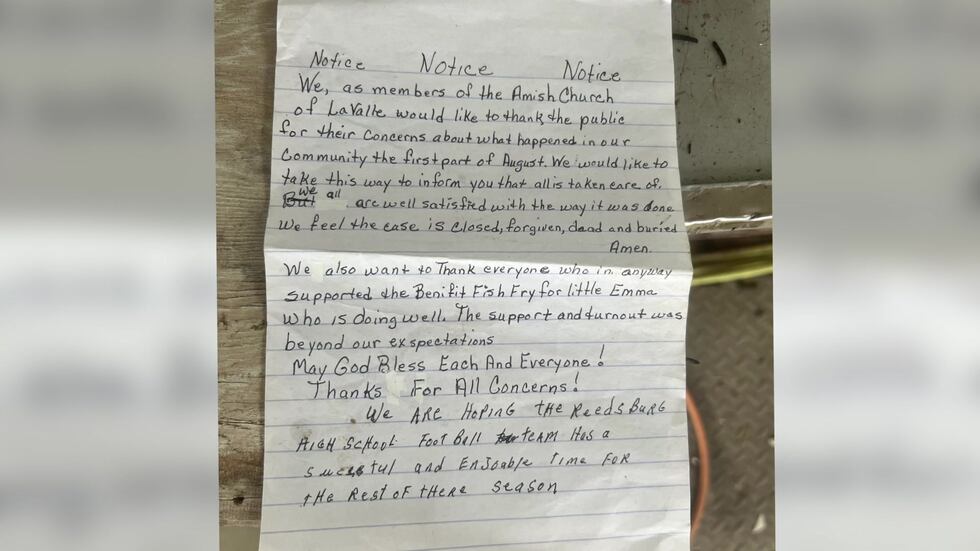 Notice Notice Notice
We, as members of the Amish Church
of LaValle would like to thank the public
for their Concerns about what happened in our
Community the first part of August. We would like to
take this way to inform you that all is taken care of.
But we all are well satisfied with the way it was done
We feel the case is closed, forgiven, dead and buried
Amen.
We also want to Thank everyone who in anyway
supported the Benifit Fish Fry for little Emma
who is doing well. The support and turnout was
beyond our exspectations
May God Bless Each And Everyone!
Thanks For All Concerns!
We ARE HOPING tHE REEDSBURG
HIGH SCHOOL FootBall tEAM HAS a
succesful and ENJoable time FOR
tHE REst OF tHERE SEASON